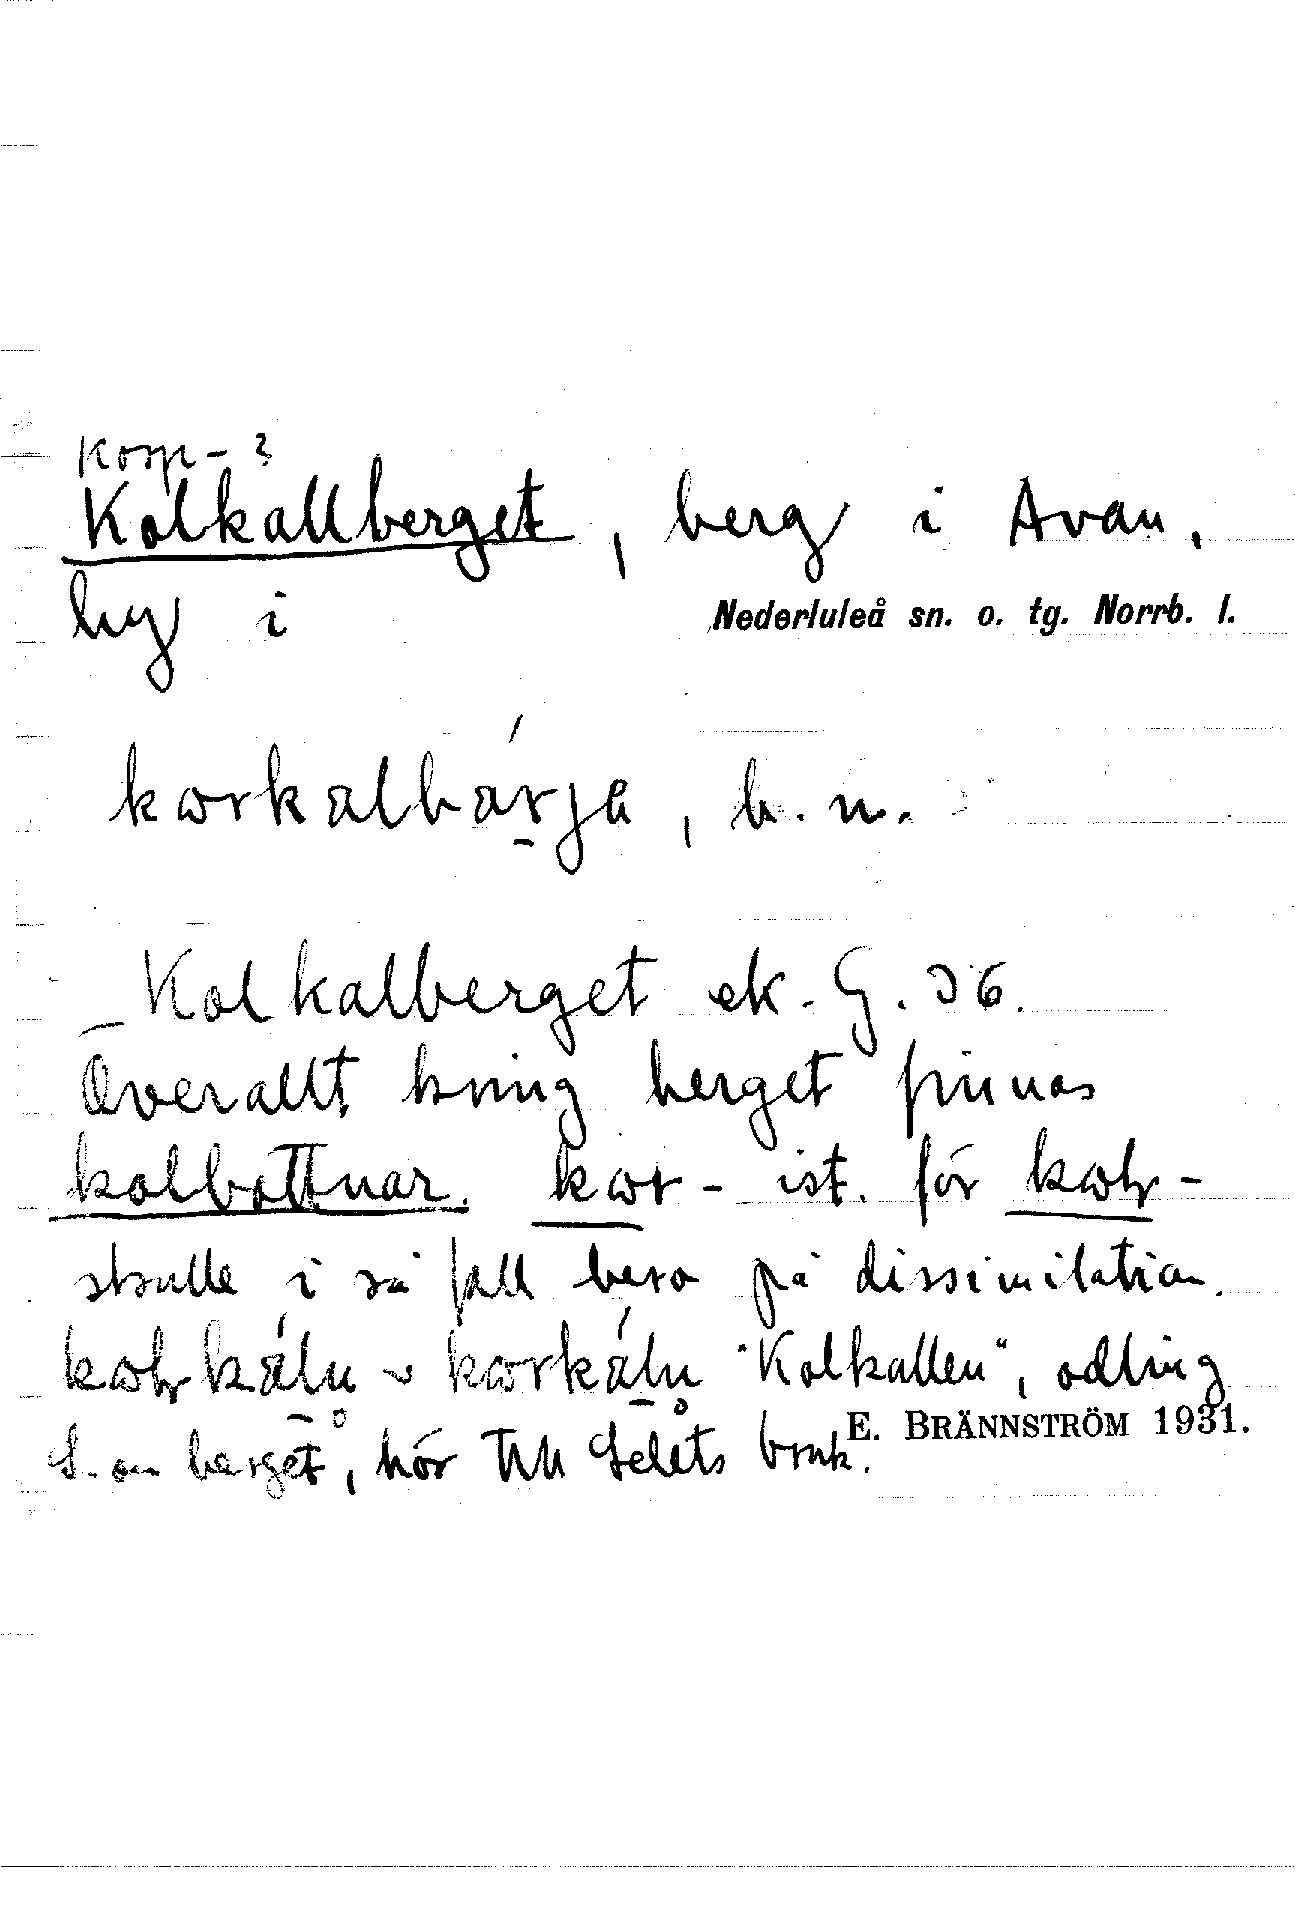 Korp- ?
Kolkallberget, berg i Avan,
by i Nederluleå sn. o. tg. Norrb. l.
kɷrkalbárja, b. n.
Kolkalberget ek. G. 36.
Överallt kring berget finnas
kolbottnar. kɷr- ist. för kɷɽ-
skulle i så fall bero på dissimilation.
kɷɽkáln̥ ~ kɷrkáln̥ "Kolkallen", odling
S. om berget, hör till Selets bruk.
E. BRÄNNSTRÖM 1931.